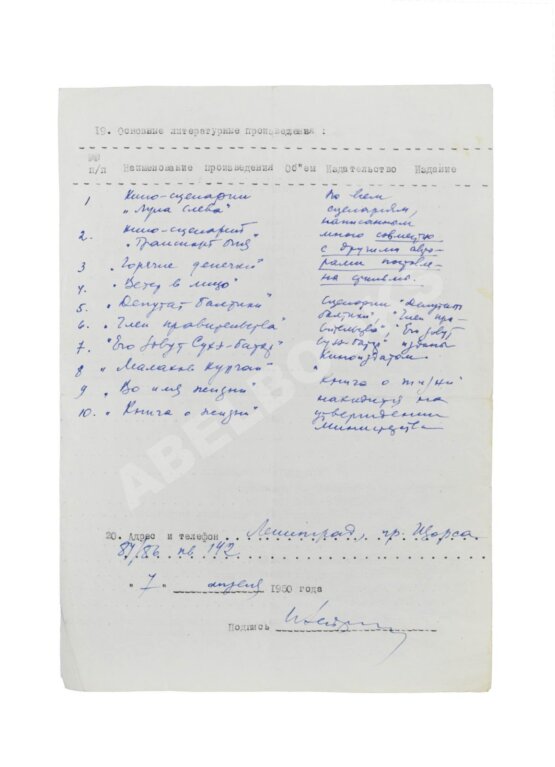 19. Основные литературные произведения :
№№
п/п Наименование произведения Об"ем Издательство Издание
1 Кино-сценарии
"Луна слева"
2. Кино-сценарий
"Транспорт огня"
3 "Горячие денечки"
4. "Ветер в лицо"
5. "Депутат Балтики"
6. "Член правительства"
7. "Его зовут Сухэ-Батор"
8 "Малахов Курган"
9 "Во имя жизни"
10. "Книга о жизни"
По всем
сценариям,
написанном
мною совместно
с другими авто-
рами поставле-
на фильмо.
Сценарии "Депутат
Балтики", "Член пра-
вительства", "Его зовут
Сухэ-Батор" изданы
Киноиздатом
"Книга о жизни"
находится на
утверждении
Министерства
20. Адрес и телефон Ленинград, пр. Щорса
84/86 кв. 142
" 7 " апреля 1950 года
Подпись
ABELBOOKS